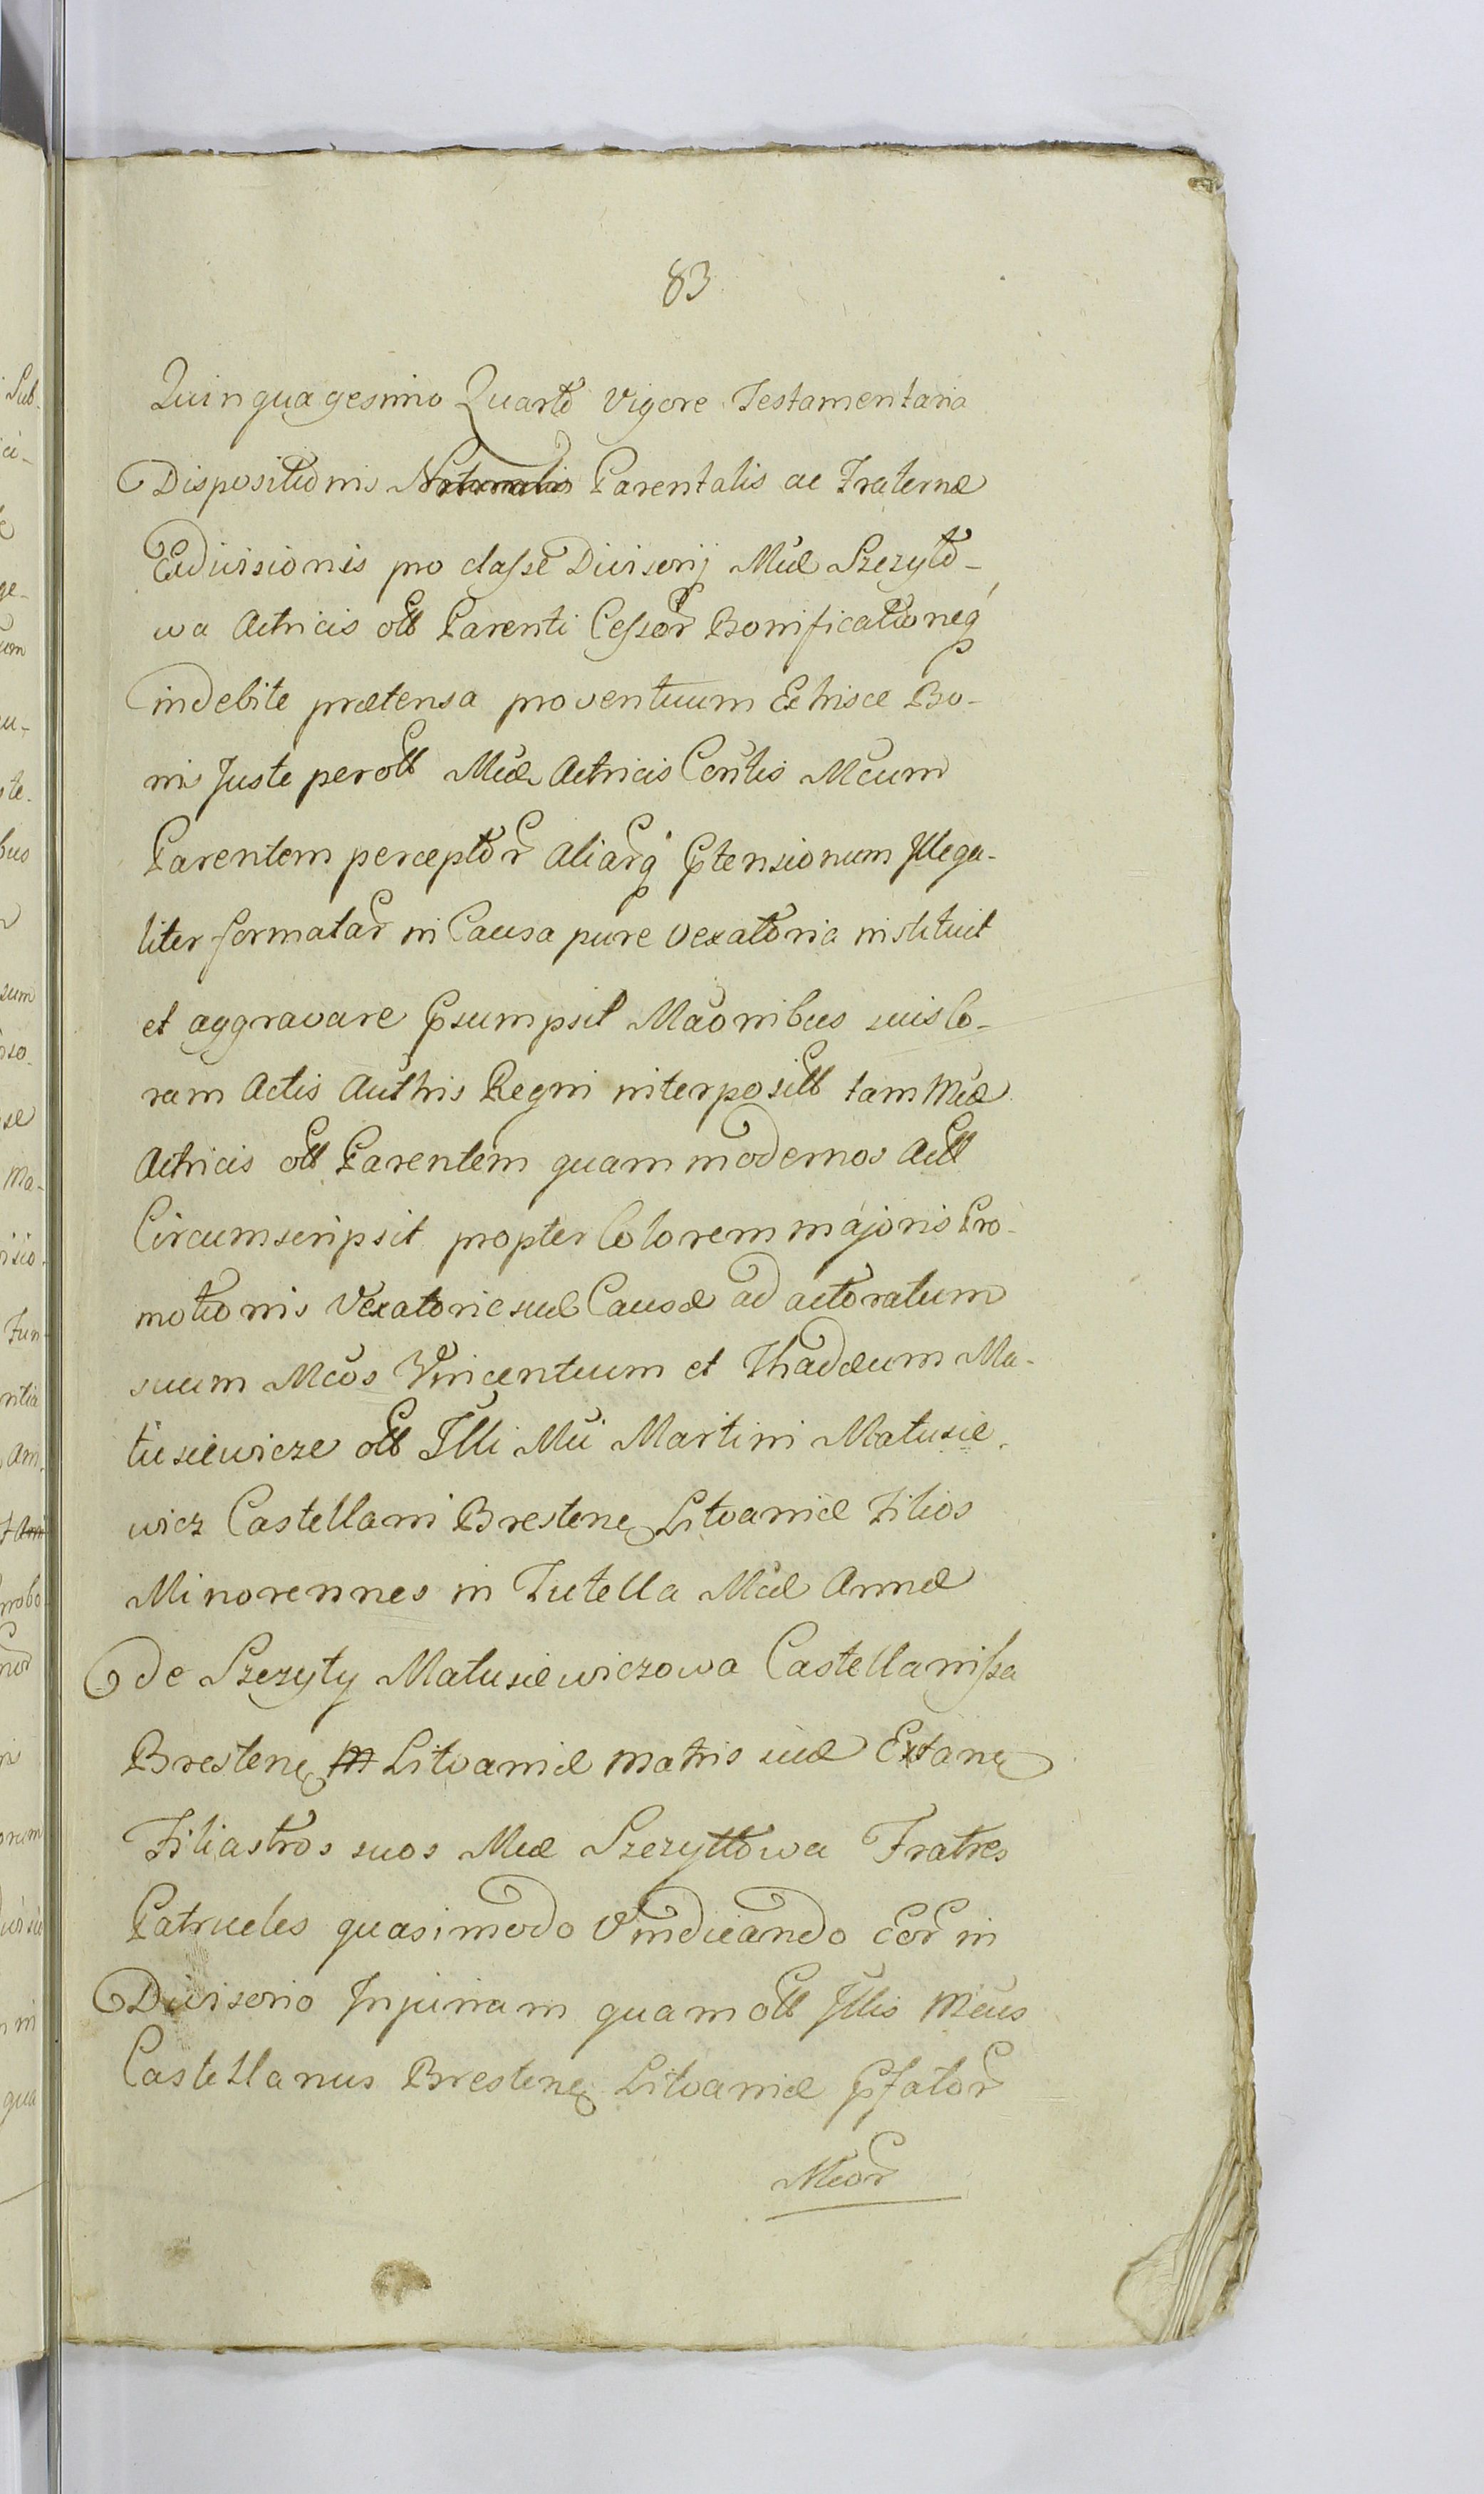 83
Quinquagesimo Quarto vigore Testamentaria
Dispositionis Parentalis ac Fraternæ
Exdivisionis pro classe Divisorij Mcæ Szczyto-
wa Actricis olb Parenti Cessor Bonificationeq
indebite prætensa proventuum Ex hisce Bo-
nis Juste per olb Mcæ Actricis Contis Mcum
Parentem perceptor aliarq Ptensionum Illega-
liter formatar in Causa pure vexatoria instituit
et aggravare Psumpsit Maonibus suis Co-
ram Actis Authis Regni interposilb tam Mcæ
Actricis olb Parentem quam modernos Aclb
Circumscripsit propter Colorem majoris Pro-
motionis Vexatorie suæ Causæ ad actoratum
suum Mcos Vincentium et Thadæum Ma-
tusiewicze olb Illi Mci Martini Matusie-
wicz Castellani Bresten Litvaniæ Filios
Minorennes in Tutella Mcæ Annæ
de Szczyty Matusiewiczowa Castellanissa
Bresten Litvaniæ matris suæ Extan
Filiastros suos Mcæ Szczyttowa Fratres
Patrueles quasimodo Vindicando eor in
Divisorio Injuriam quam olb Illis Mcus
Castellanus Bresten Litvaniæ Pfator
Mcor